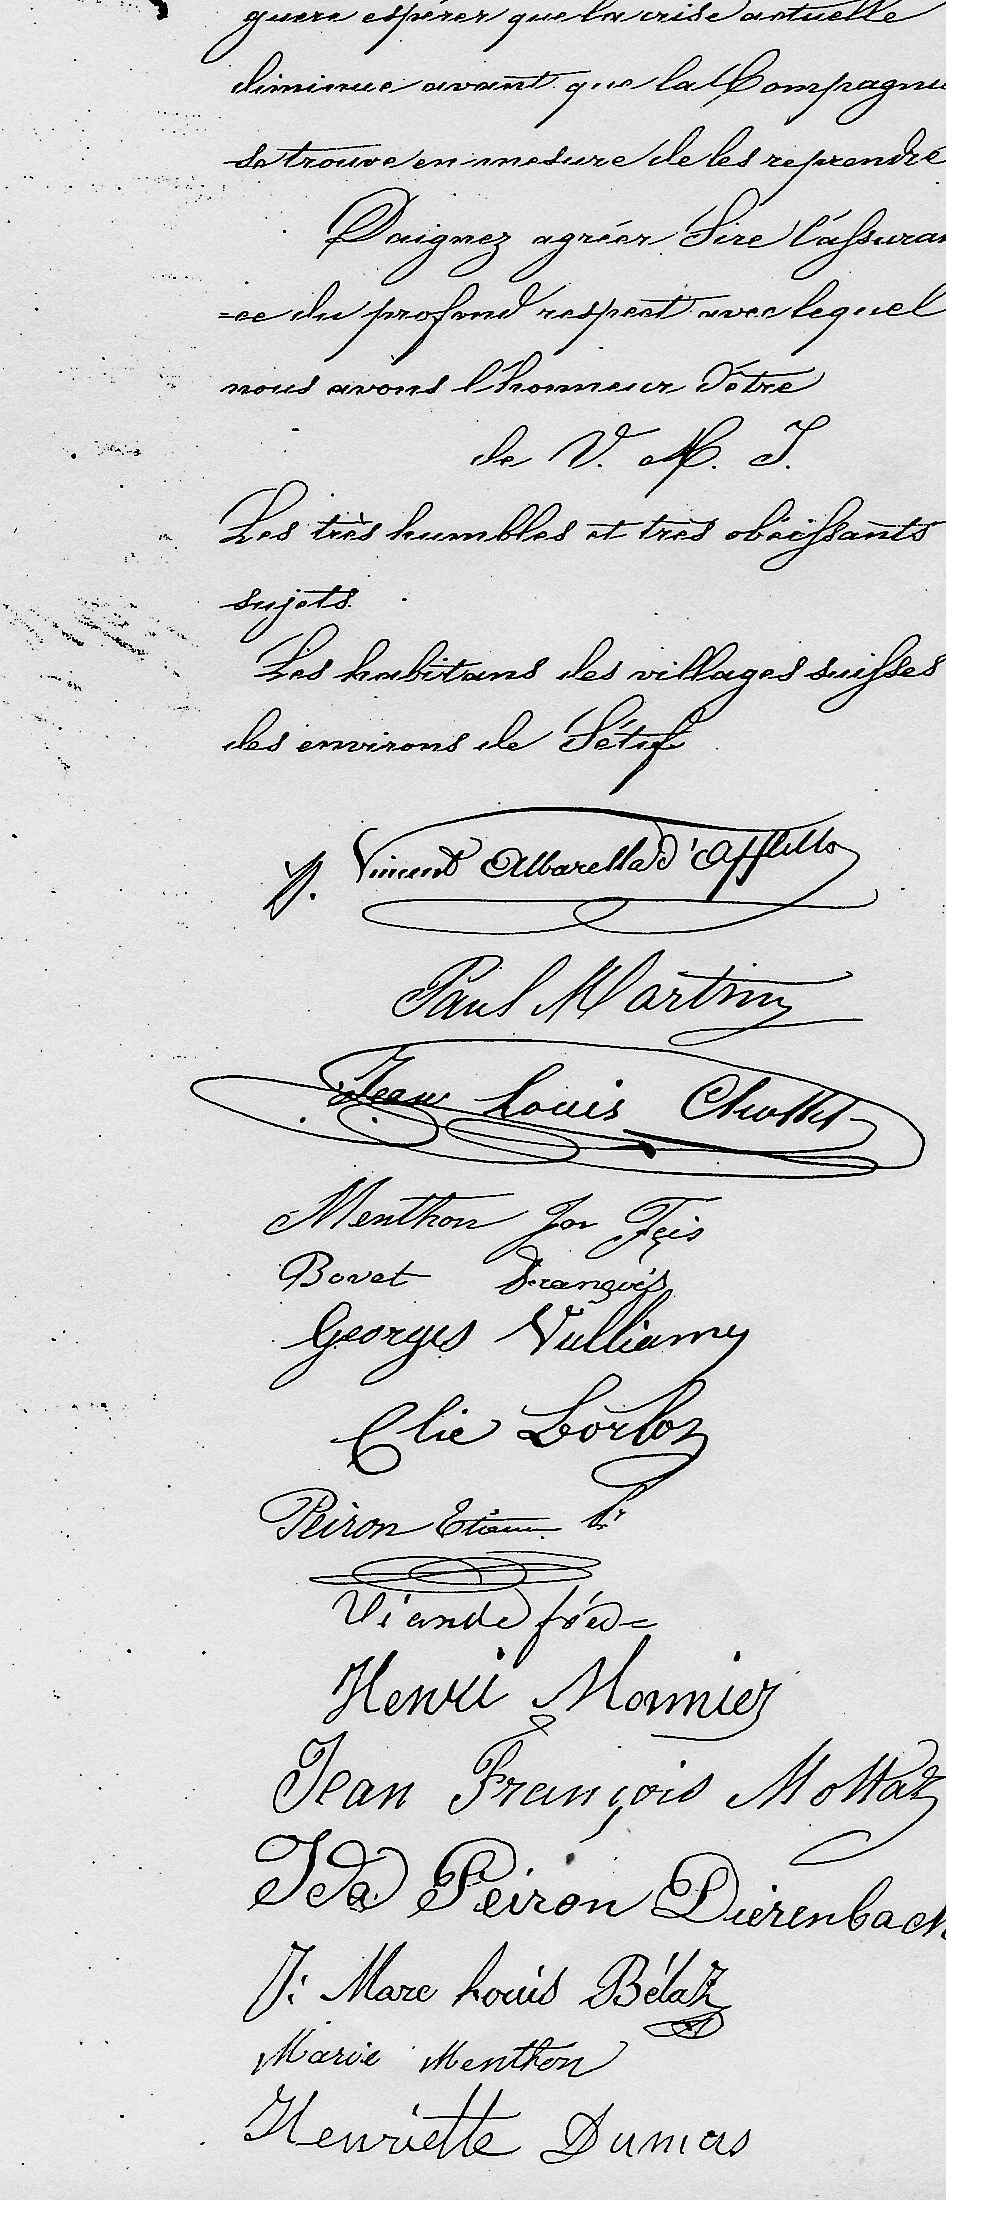 guere espérer que la crise actuelle
diminue avant que la Compagnie
se trouve en mesure de les reprendre
Daignez agréer Sire l'assuran
=ce du profond respect avec lequel
nous avons l'honneur d'être
de V. M. I.
Les très humbles et très obéissants
sujets
Les habitans des villages suisses
des environs de Sétif
Vincent Albarella d'Afflitto
Paul Martiny
Jean Louis Chollet
Menthon Jn Fçis
Bovet François
Georges Vulliamy
Elie Borloz
Peiron Etienne
Viande fréd=
Henri Monnier
Jean François Mottaz
Ida Peiron Dierenbach
J: Marc Louis Bélaz
Marie Menthon
Henriette Dumas